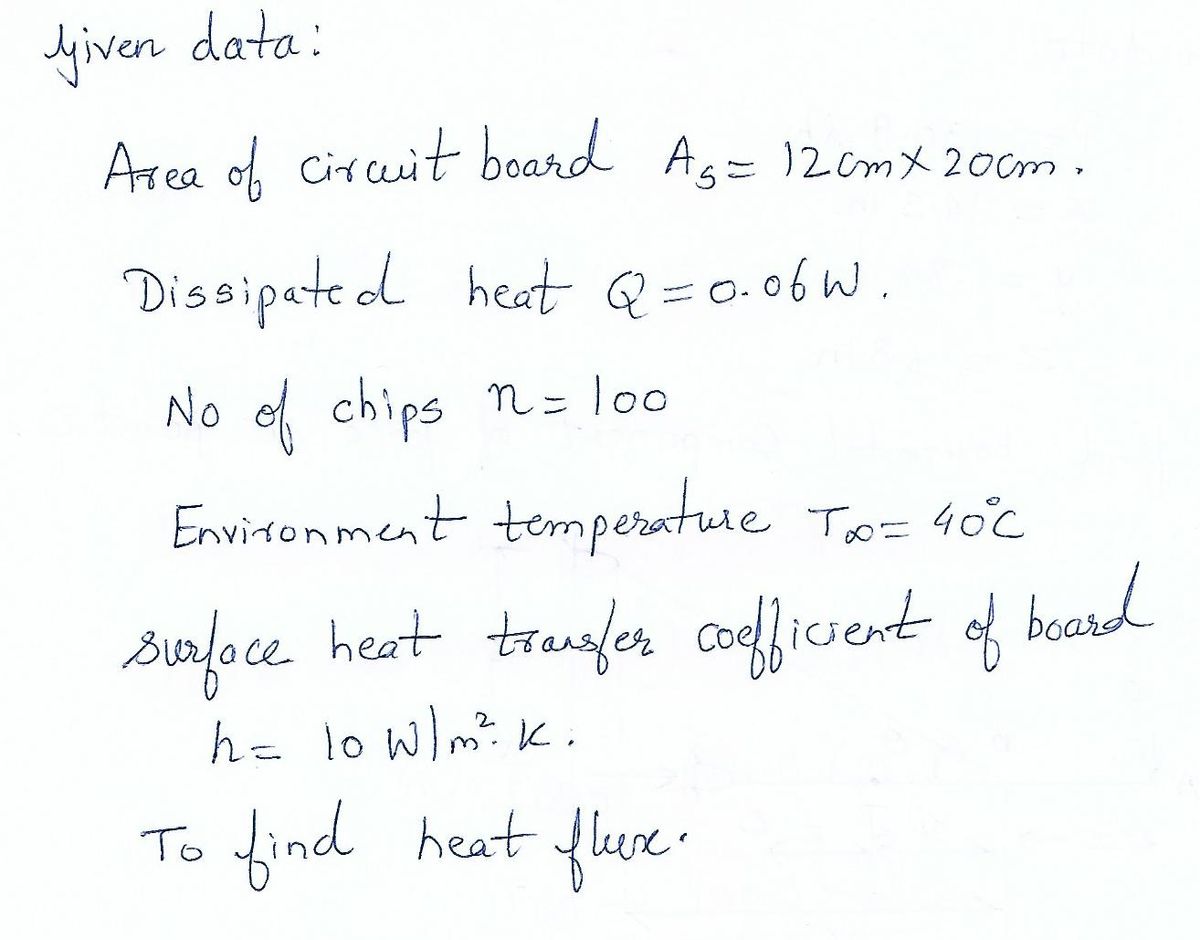 Given data:
Area of circuit board As = 12cm × 20cm.
Dissipated heat Q = 0.06 W.
No of chips n = 100
Environment temperature T∞ = 40°C
surface heat transfer coefficient of board
h = 10 W/m². K.
To find heat flux.